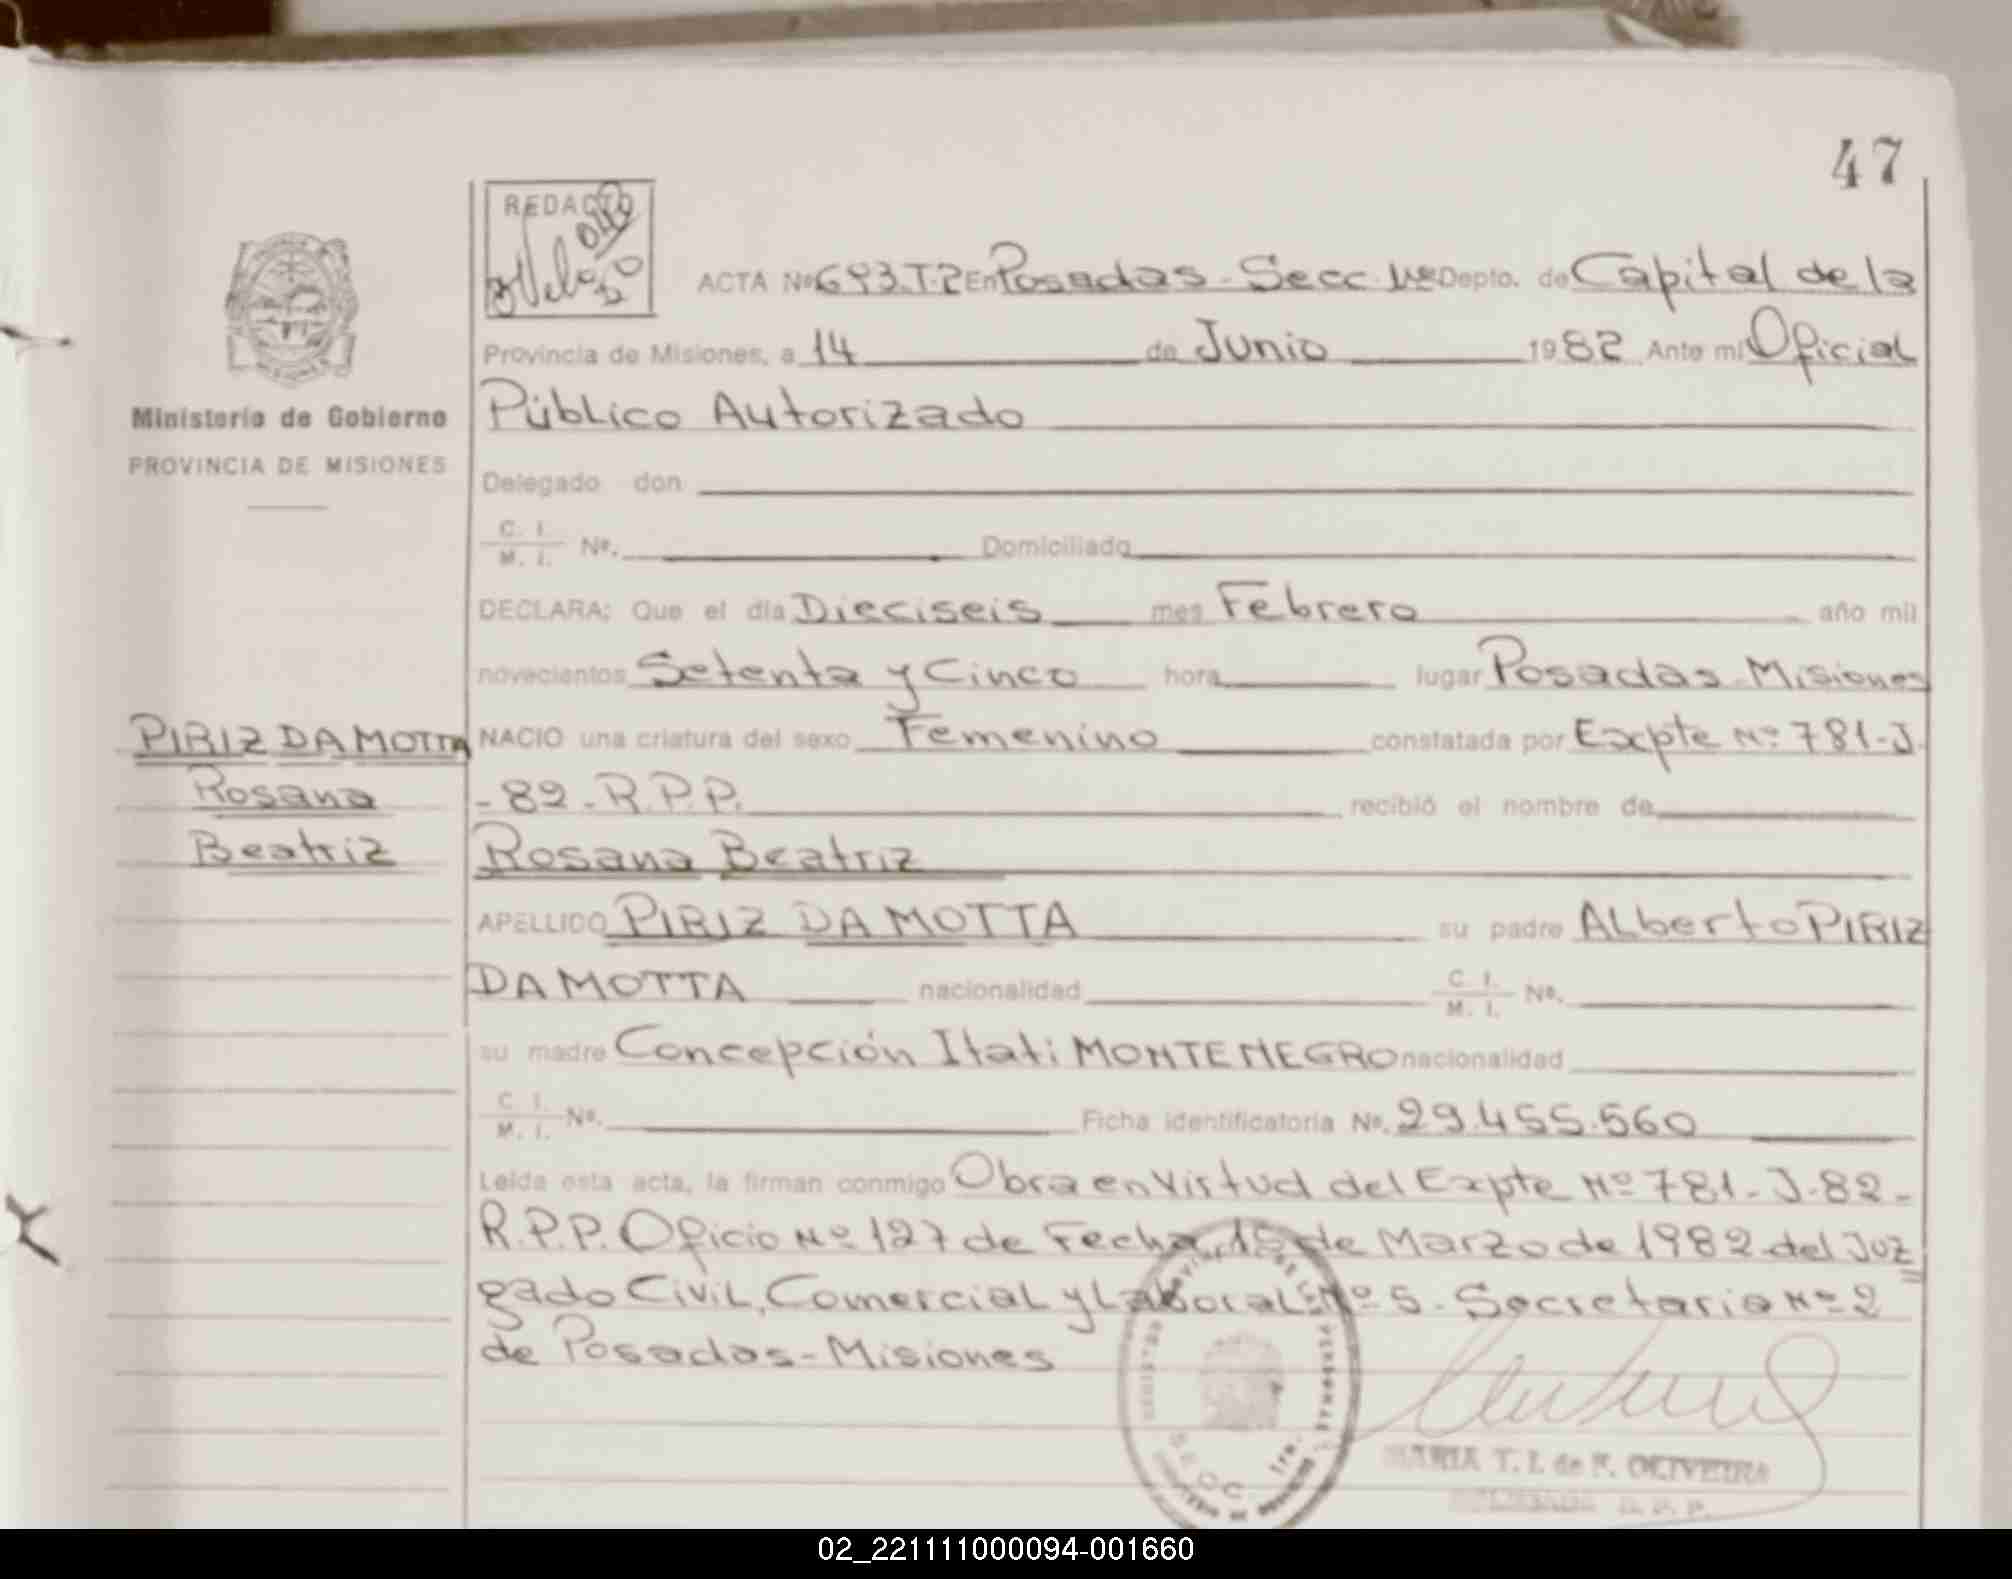 47
REDACTO
ACTA Nº 693.T.2 En Posadas - Secc. 1ra Depto. de Capital de la
Provincia de Misiones, a 14 de Junio 1982 Ante mi Oficial
Público Autorizado
Ministerio de Gobierno
PROVINCIA DE MISIONES
Delegado don
C. I. / M. I. Nº. Domiciliado
DECLARA: Que el día Dieciseis mes Febrero año mil
novecientos Setenta y Cinco hora lugar Posadas Misiones
PIRIZ DA MOTTA
Rosana
Beatriz
NACIO una criatura del sexo Femenino constatada por Expte Nº 781-J.
-82-R.P.P. recibió el nombre de
Rosana Beatriz
APELLIDO PIRIZ DA MOTTA su padre ALberto PIRIZ
DA MOTTA nacionalidad C. I. / M. I. Nº.
su madre Concepción Itati MONTENEGRO nacionalidad
C. I. / M. I. Nº. Ficha identificatoria Nº. 29.455.560
Leída esta acta, la firman conmigo Obra en Virtud del Expte Nº 781-J-82-
R.P.P. Oficio Nº 127 de Fecha 15 de Marzo de 1982 del Juz
gado Civil, Comercial y Laboral Nº 5 - Secretaria Nº 2
de Posadas - Misiones
MARIA T. I. de F. OLIVEIRA
02_221111000094-001660